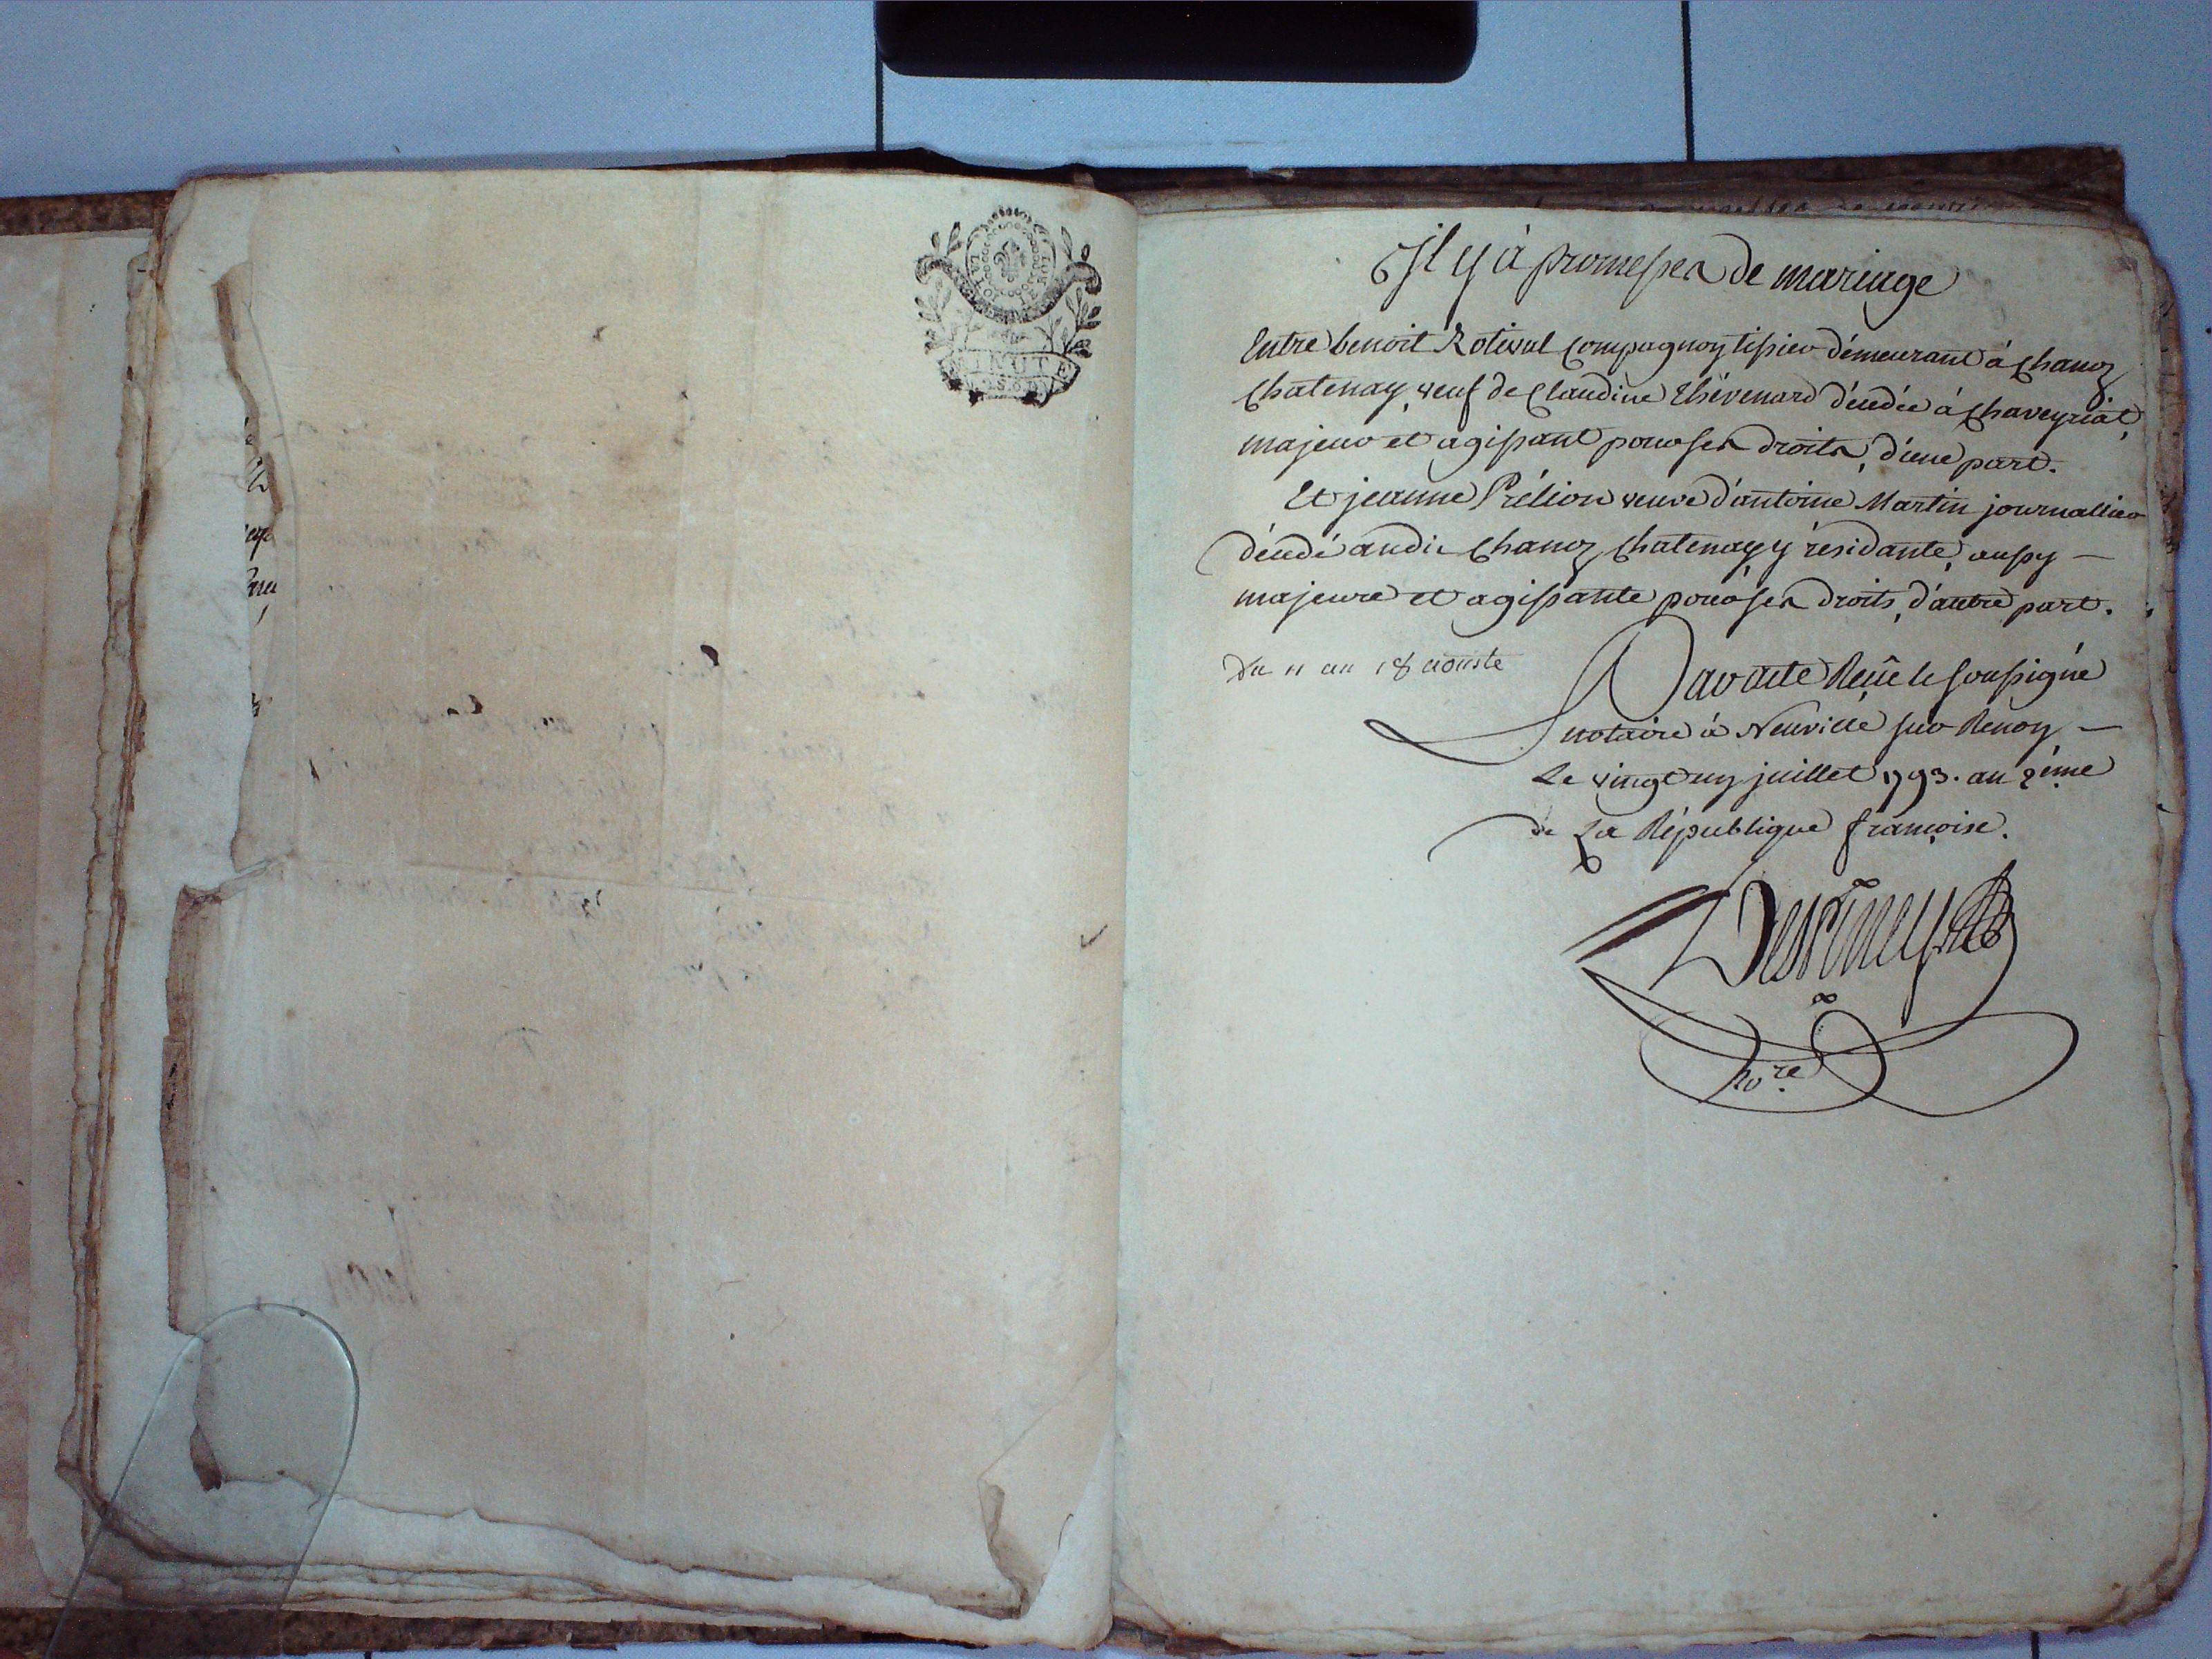 LA LOI
LE ROI
MINUTE
Il y à promesses de mariage
Entre benoit Rotival compagnon tissier démeurant à Chanoz
Chatenay, veuf de Claudine Thévenard décédée à Chaveyriat,
majeur et agissant pour ses droits, d'une part.
Et jeanne Prélion veuve d'antoine Martin journallier
décédé audit Chanoz Chatenay, y résidante, aussy —
majeure et agissante pour ses droits, d'autre part.
Du 11 au 18 aouste
Par acte Reçû le soussigné
notaire à Neuville sur Renon —
Le vingt un juillet 1793. an 2ème
de La République françoise.
nore